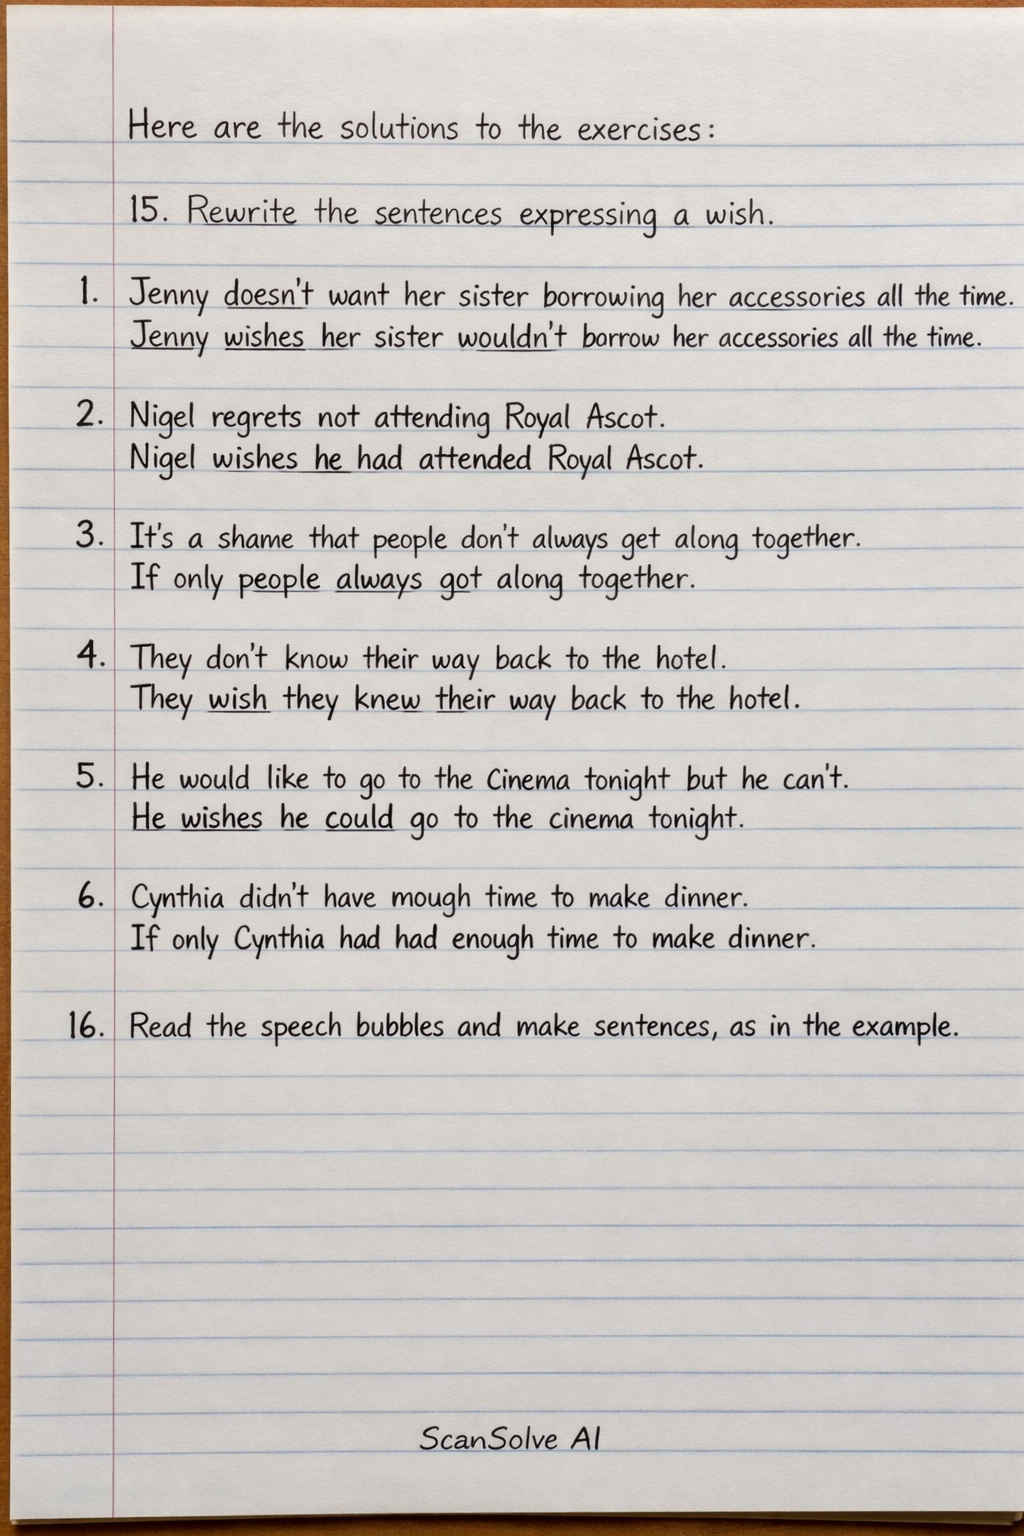 Here are the solutions to the exercises:
15. Rewrite the sentences expressing a wish.
1. Jenny doesn't want her sister borrowing her accessories all the time.
Jenny wishes her sister wouldn't borrow her accessories all the time.
2. Nigel regrets not attending Royal Ascot.
Nigel wishes he had attended Royal Ascot.
3. It's a shame that people don't always get along together.
If only people always got along together.
4. They don't know their way back to the hotel.
They wish they knew their way back to the hotel.
5. He would like to go to the Cinema tonight but he can't.
He wishes he could go to the cinema tonight.
6. Cynthia didn't have mough time to make dinner.
If only Cynthia had had enough time to make dinner.
16. Read the speech bubbles and make sentences, as in the example.
ScanSolve AI